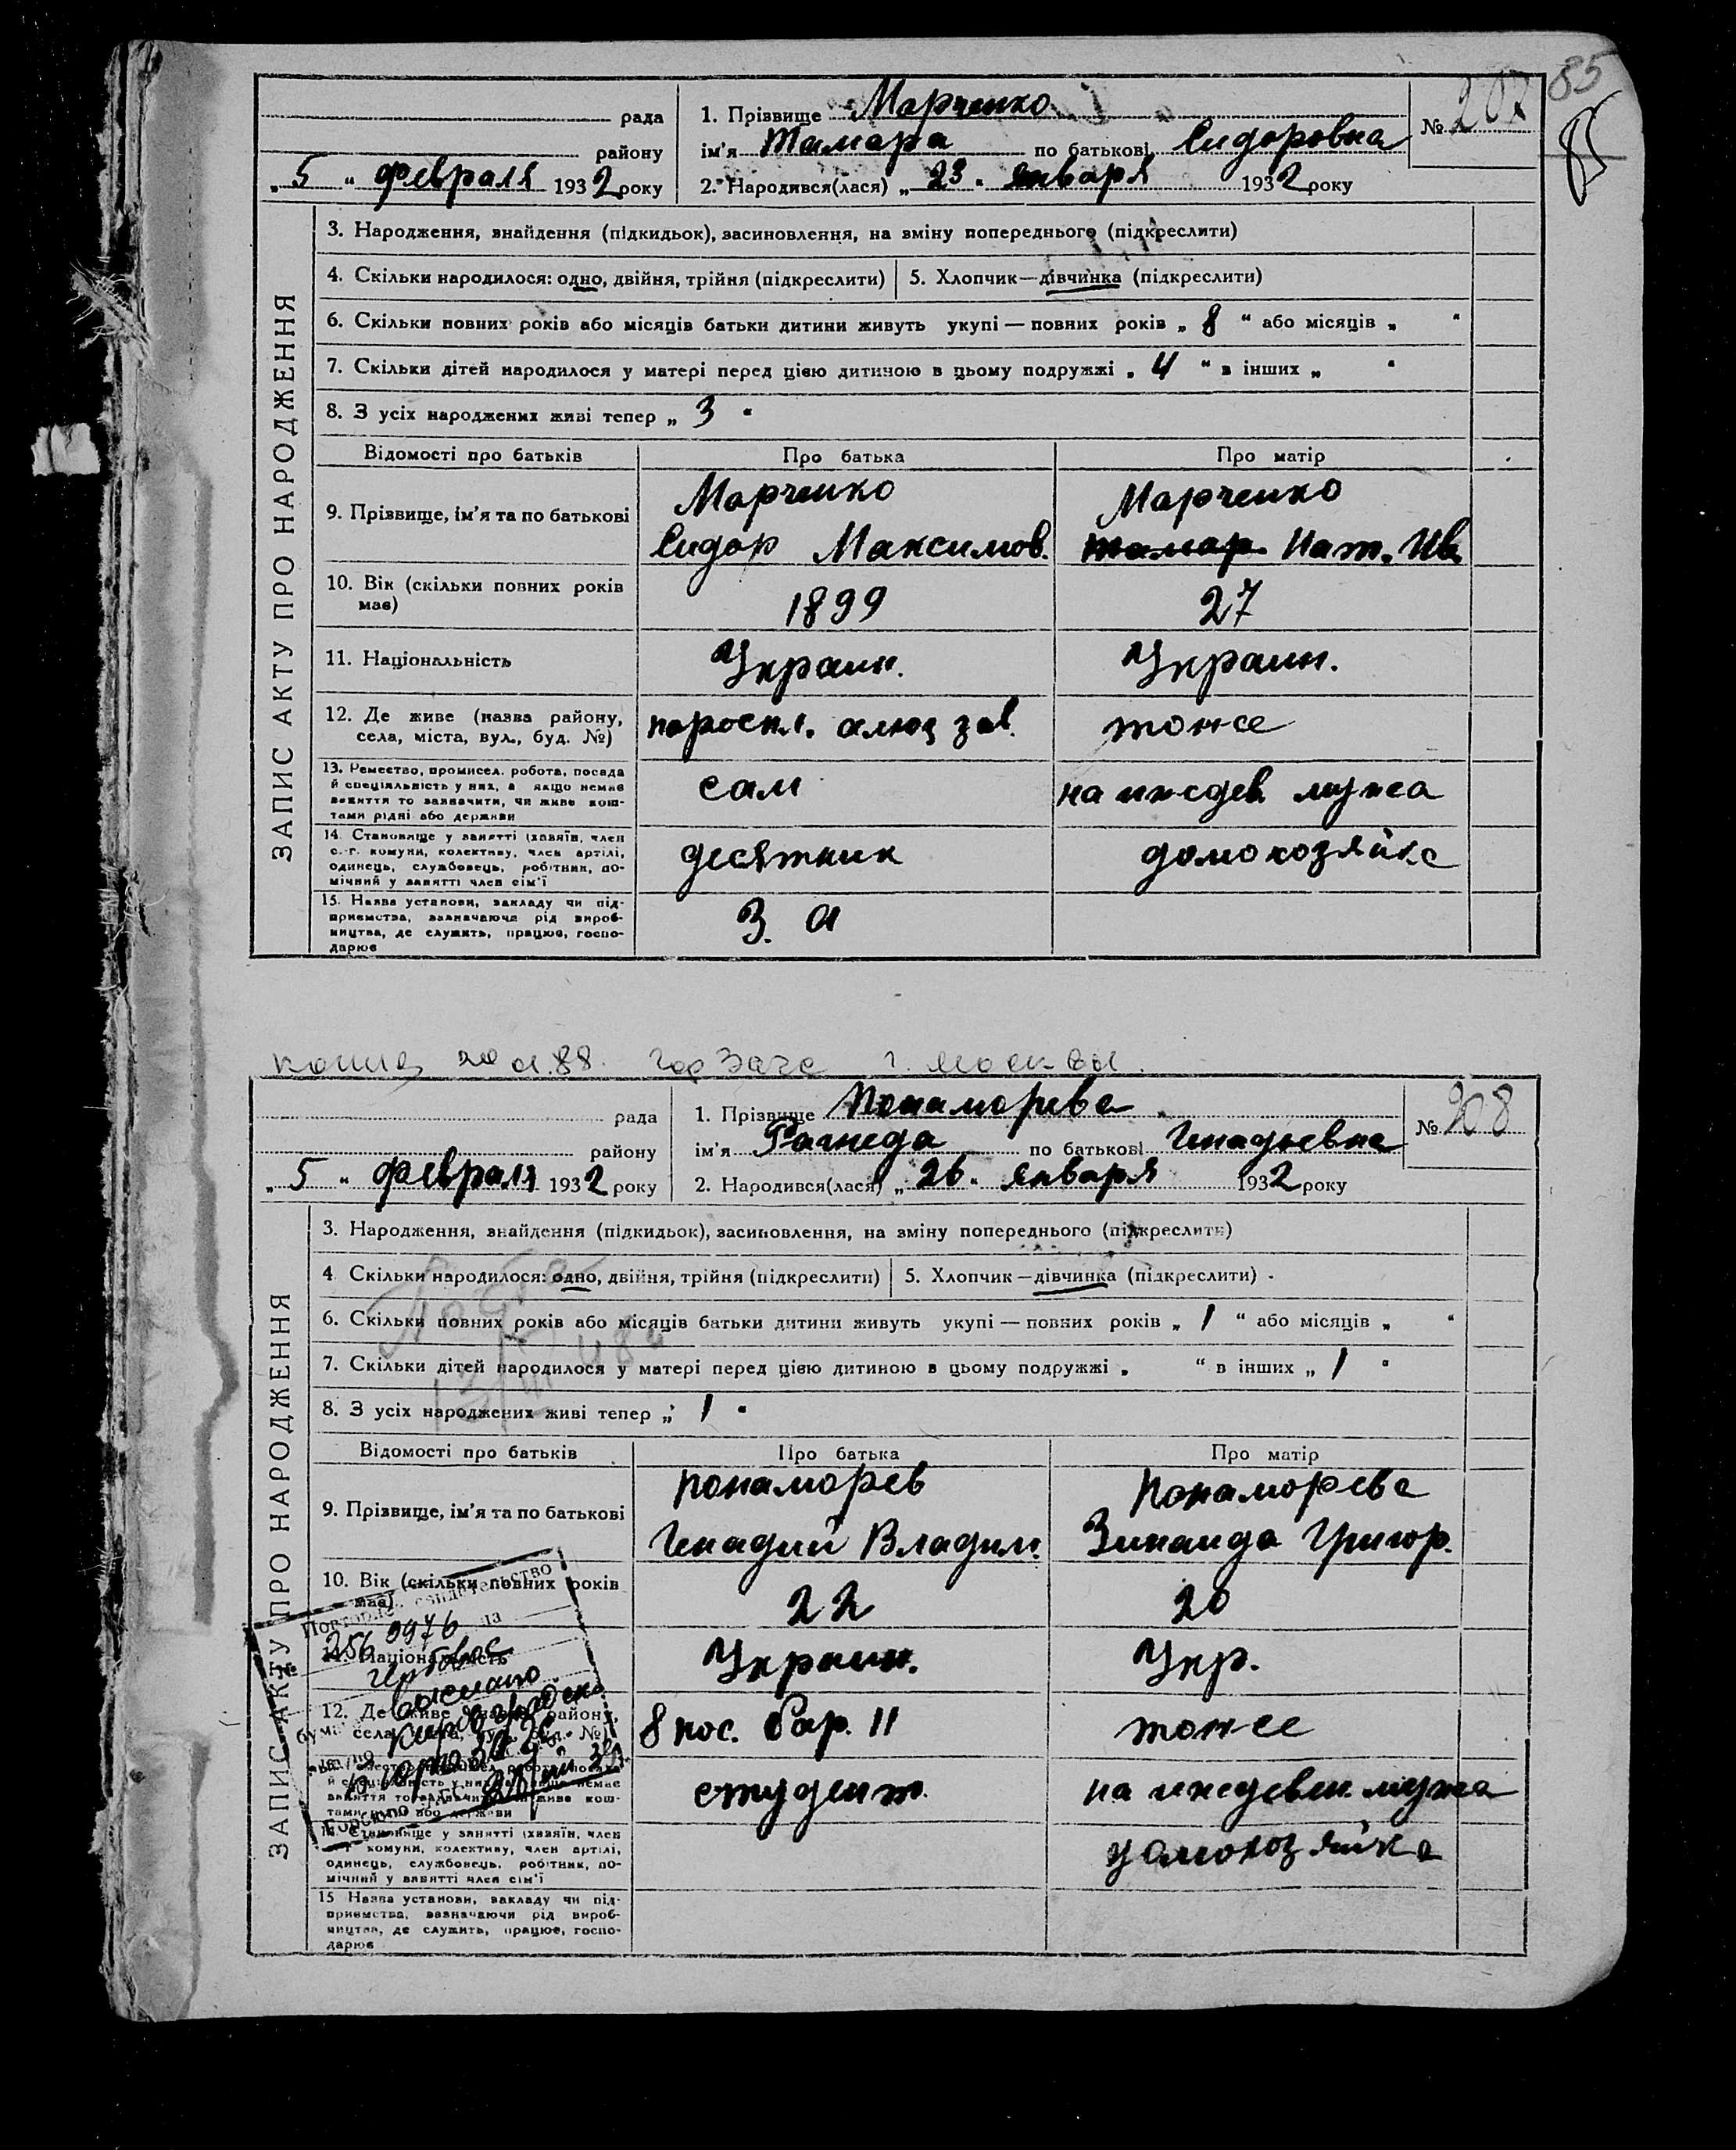 85
85
рада
1. Прізвище Марченко
№ 207
району
ім'я Тамара по батькові Сидоровна
„ 5 “ февраля 1932 року
2. Народився(лася) „ 23 “ января 1932 року
ЗАПИС АКТУ ПРО НАРОДЖЕННЯ
3. Народження, знайдення (підкидьок), засиновлення, на зміну попереднього (підкреслити)
4. Скільки народилося: одно, двійня, трійня (підкреслити) 5. Хлопчик—дівчинка (підкреслити)
6. Скільки повних років або місяців батьки дитини живуть укупі — повних років „ 8 “ або місяців „ “
7. Скільки дітей народилося у матері перед цією дитиною в цьому подружжі „ 4 “ в інших „ “
8. З усіх народжених живі тепер „ 3 “
Відомості про батьків Про батька Про матір
9. Прізвище, ім'я та по батькові
Марченко Марченко
Сидор Максимов. Тамар. Нат. Ив.
10. Вік (скільки повних років
має)
1899 27
11. Національність Украин. Украин.
12. Де живе (назва району,
села, міста, вул., буд. №)
алюм зав. тоже
13. Ремество, промисел, робота, посада
й спеціяльність у них, а якщо немає
заняття то зазначити, чи живе кош-
тами рідні або держави
сам на иждев. мужа
14. Становище у занятті (хазяїн, член
с.-г. комуни, колективу, член артілі,
одинець, службовець, робітник, по-
мічний у занятті член сім'ї
десятник домохозяйка
15. Назва установи, закладу чи під-
приємства, зазначаючи рід вироб-
ництва, де служить, працює, госпо-
дарює
З. А
88. гор Загс г. Москвы.
рада
1. Прізвище Понаморева
№ 208
району
ім'я Рагнеда по батькові Генадьевна
„ 5 “ февраля 1932 року
2. Народився(лася) „ 26 “ января 1932 року
ЗАПИС АКТУ ПРО НАРОДЖЕННЯ
3. Народження, знайдення (підкидьок), засиновлення, на зміну попереднього (підкреслити)
4. Скільки народилося: одно, двійня, трійня (підкреслити) 5. Хлопчик—дівчинка (підкреслити)
6. Скільки повних років або місяців батьки дитини живуть укупі — повних років „ 1 “ або місяців „ “
7. Скільки дітей народилося у матері перед цією дитиною в цьому подружжі „ “ в інших „ 1 “
8. З усіх народжених живі тепер „ 1 “
Відомості про батьків Про батька Про матір
9. Прізвище, ім'я та по батькові
Понаморев Понаморева
Генадий Владим. Зинаида Григор.
10. Вік (скільки повних років
має)
22 20
11. Національність Украин. Укр.
12. Де живе (назва району,
села, міста, вул., буд. №)
8 пос. бар. 11 тоже
студент. на иждевен. мужа
заняття то зазначити, чи живе кош-
тами рідні або держави
14. Становище у занятті (хазяїн, член
с.-г. комуни, колективу, член артілі,
одинець, службовець, робітник, по-
мічний у занятті член сім'ї
домохозяйка
15 Назва установи, закладу чи під-
приємства, зазначаючи рід вироб-
ництва, де служить, працює, госпо-
дарює